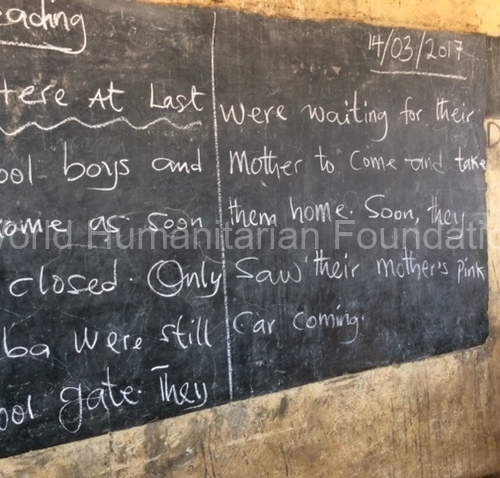 ading
tere At Last
ool boys and
ome as soon
closed. Only
ba were still
ool gate. They
14/03/2017
were waiting for their
Mother to Come and take
them home. Soon, they
Saw their mother's pink
Car coming.
World Humanitarian Foundati